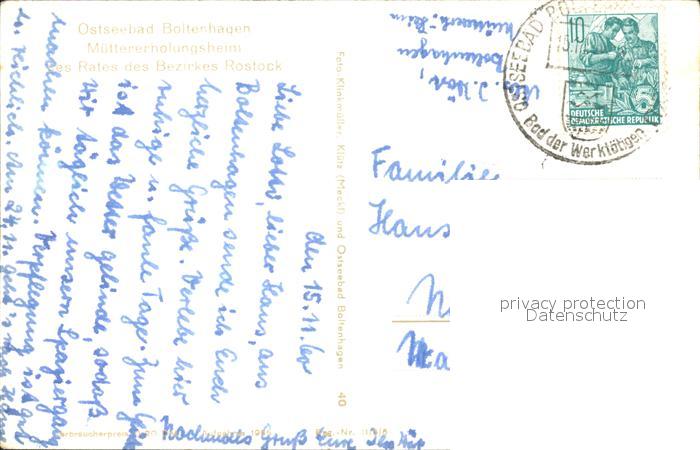 Ostseebad Boltenhagen
Müttererholungsheim
des Rates des Bezirkes Rostock
den 15.11.60
Liebe Lotte, lieber Hans, aus
Boltenhagen sende ich Euch
herzliche Grüße. Verlebe hier
ruhige u. faule Tage. Zum
ist das Wetter gelinde, sodaß
wir täglich unsern Spaziergang
machen können. Verpflegung ist gut
u. reichlich. Am 24.11. geht's nach
Nochmals Gruß Eure Ilse
Foto Klinkmüller, Klütz (Meckl) und Ostseebad Boltenhagen 40
Boltenhagen
Familie
Hans
OSTSEEBAD
Bad der Werktätigen
10
5
DEUTSCHE
DEMOKRATISCHE REPUBLIK
privacy protection
Datenschutz